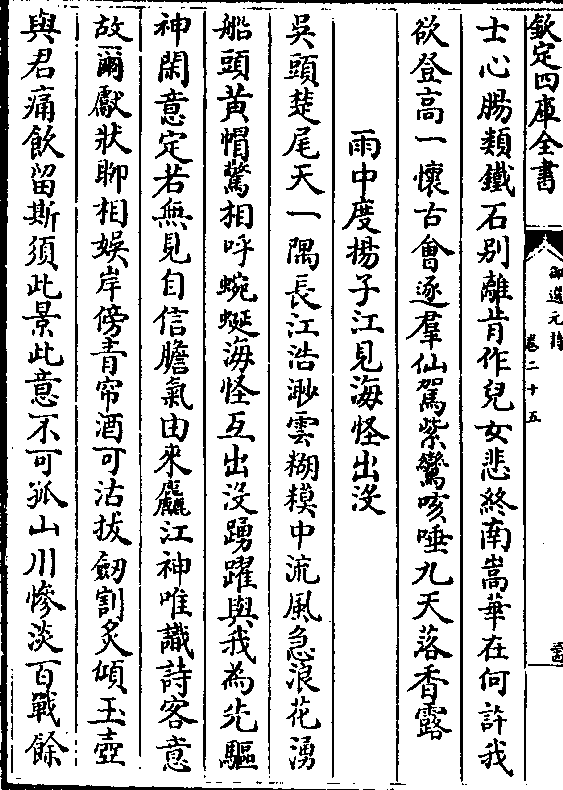 欽定四庫全書
御選元詩
卷二十五
士心腸類鐵石别離肯作兒女悲終南嵩華在何許我
欲登高一懷古會逐羣仙駕紫鸞咳唾九天落香露
雨中度揚子江見海怪出没
吳頭楚尾天一隅長江浩渺雲糢糊中流風急浪花湧
船頭黄帽驚相呼蜿蜒海怪互出没踴躍與我為先驅
神閑意定若無見自信膽氣由來麤江神唯識詩客意
故爾獻狀聊相娛岸傍青帘酒可沽拔劒割炙傾玉壺
與君痛飲留斯須此景此意不可孤山川慘淡百戰餘